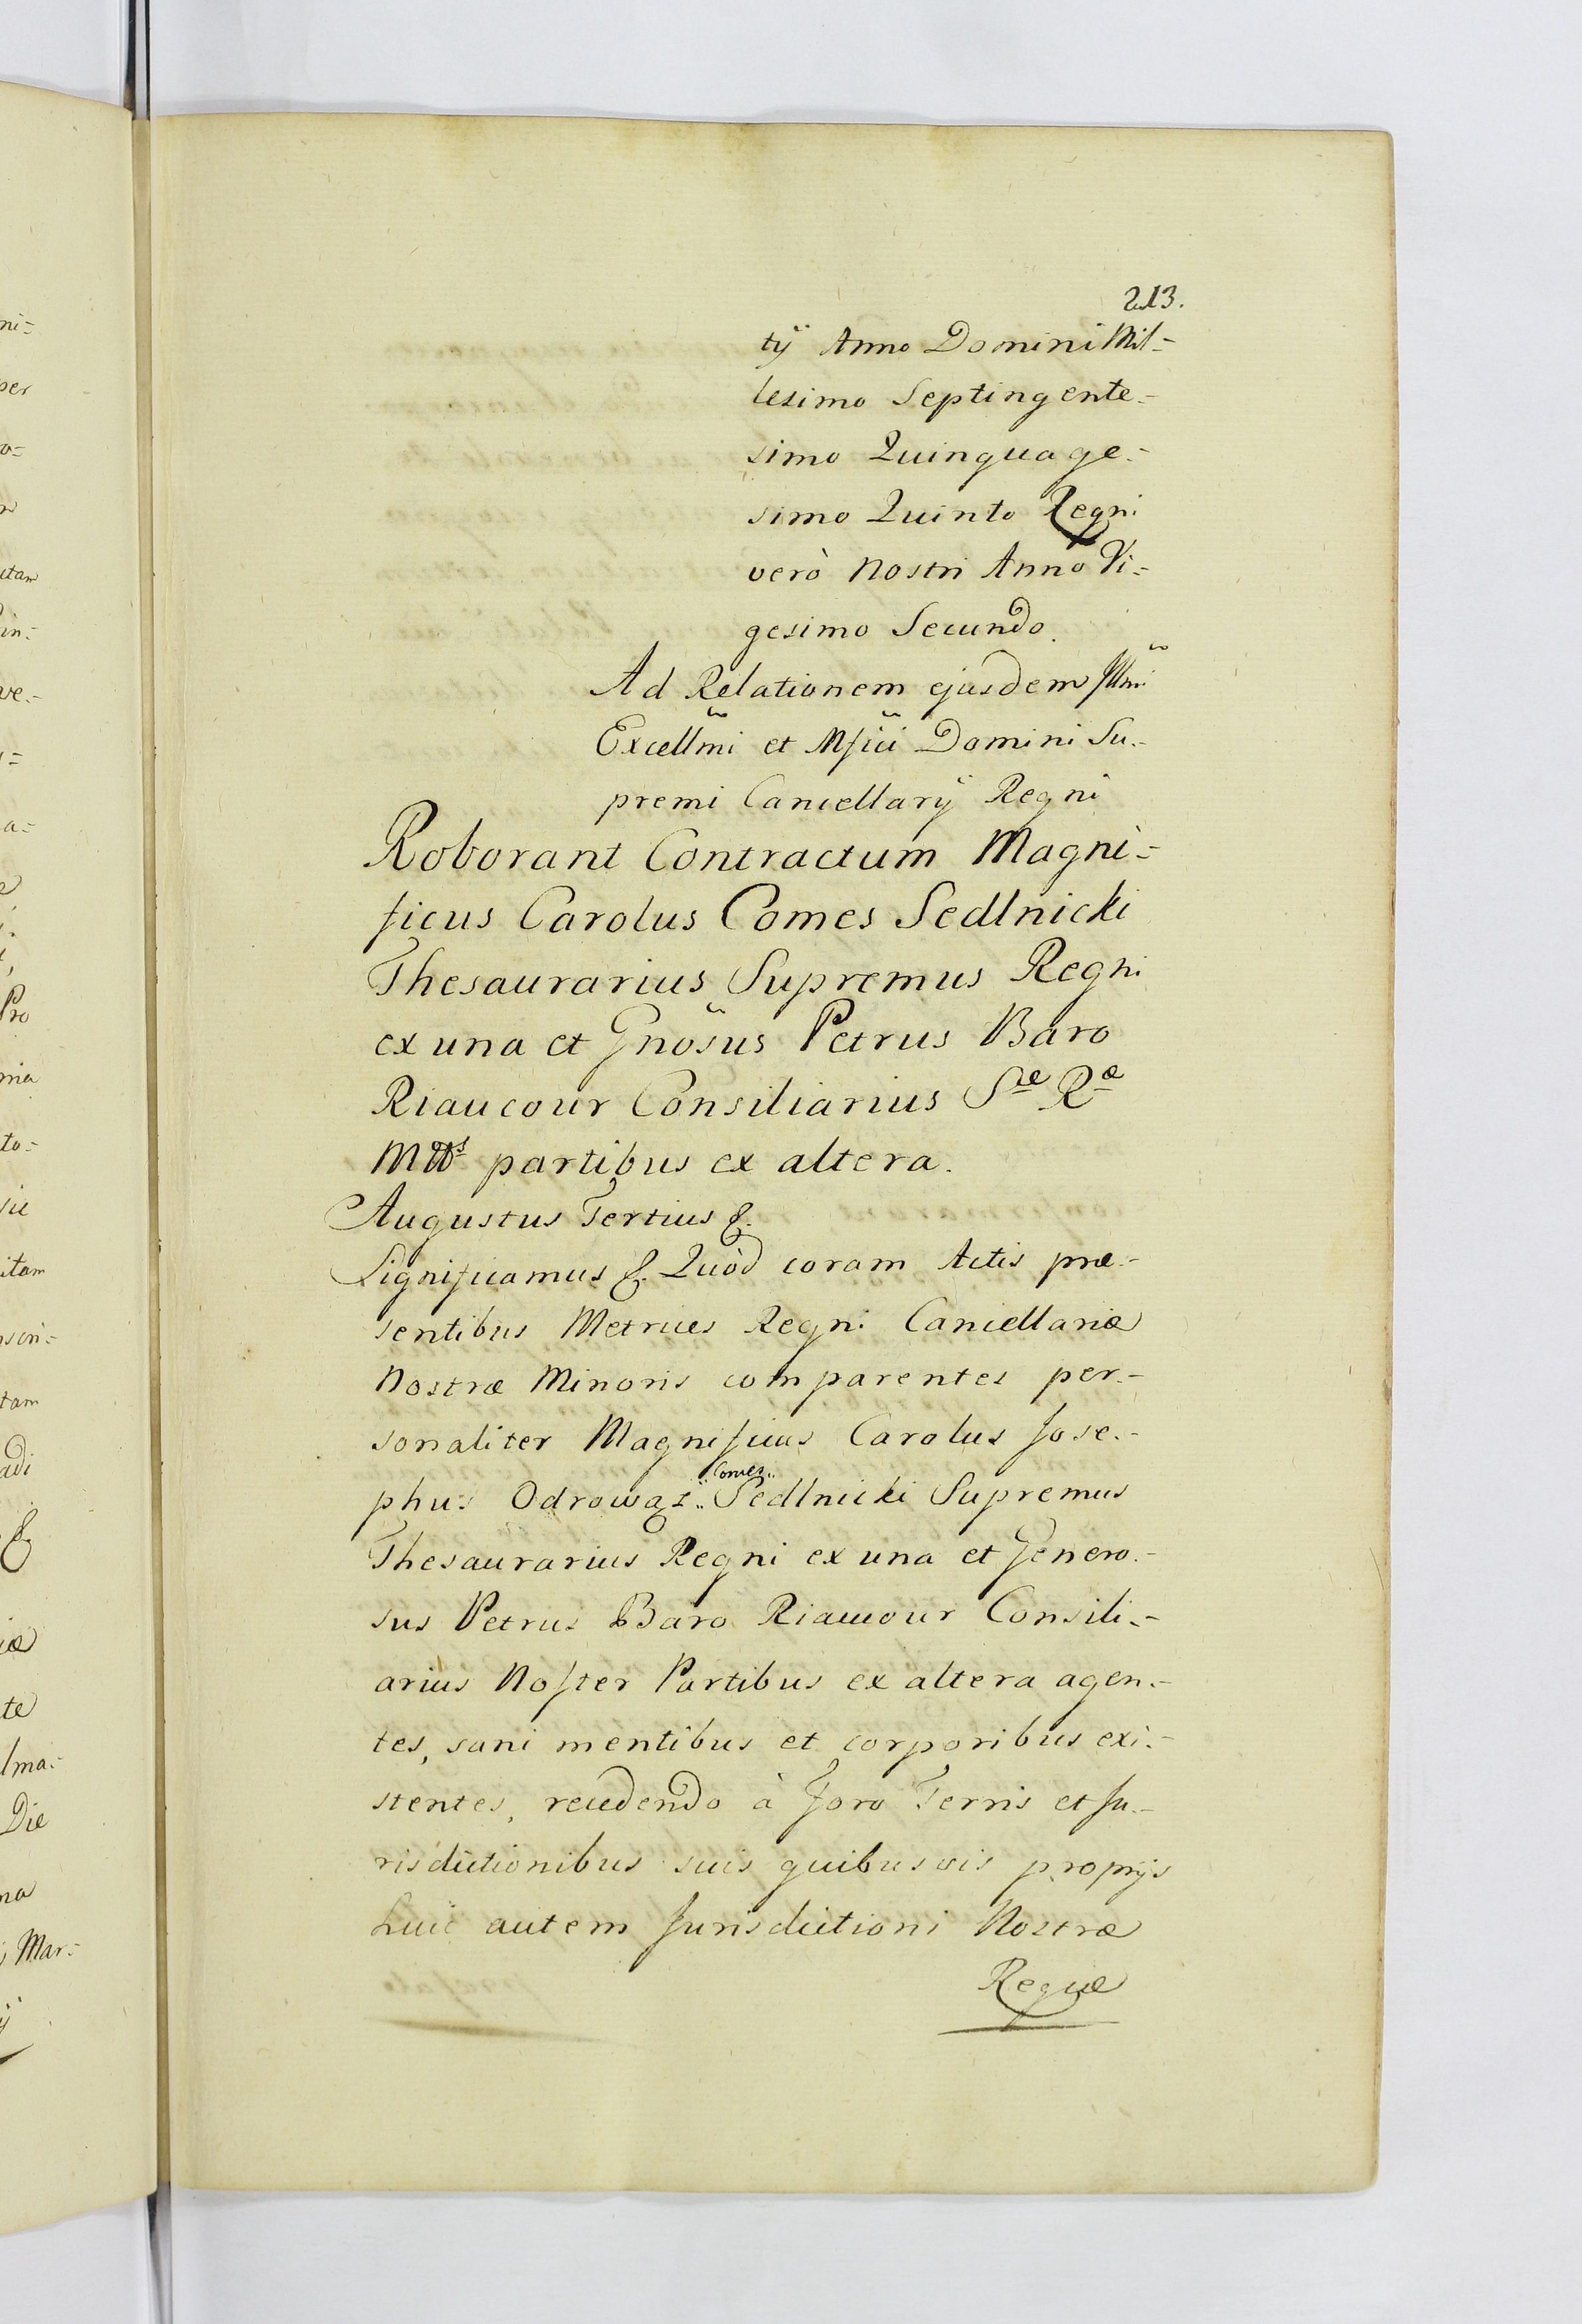 213.
tÿ Anno Domini Mil=
lesimo Septingente=
simo Quinquage=
simo Quinto Regni
verò Nostri Anno Vi=
gesimo Secundo.
Ad Relationem ejusdem Illmi
Excellmi et Mfici Domini Su=
premi Cancellarÿ Regni
Roborant Contractum Magni=
ficus Carolus Comes Sedlnicki
Thesaurarius Supremus Regni
ex una et Gnosus Petrus Baro
Riaucour Consiliarius Sae Rae
Mttis partibus ex altera.
Augustus Tertius &.
Significamus &. Quòd coram Actis præ=
sentibus Metrices Regni Cancellariæ
Nostræ Minoris comparentes per=
sonaliter Magnificus Carolus Jose=
phus Odrowąz Comes Sedlnicki Supremus
Thesaurarius Regni ex una et Genero=
sus Petrus Baro Riaucour Consili=
arius Noster Partibus ex altera agen=
tes, sani mentibus et corporibus exi=
stentes, recedendo à Foro Terris et Ju=
risdictionibus suis quibusvis proprijs
huic autem Jurisdictioni Nostræ
Regiæ
ni=
per
o=
utam
in=
ve=
a=
Pro
nia
to=
sie
itam
tam
adi
&
iæ
te
lma=
Die
na
Mar=
ÿ